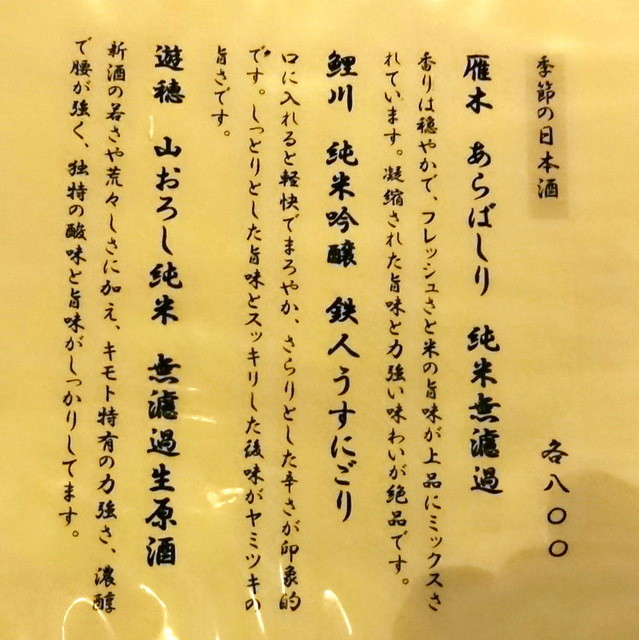 季節の日本酒
各八〇〇
雁木 あらばしり 純米無濾過
香りは穏やかで、フレッシュさと米の旨味が上品にミックスさ
れています。凝縮された旨味と力強い味わいが絶品です。
鯉川 純米吟醸 鉄人うすにごり
口に入れると軽快でまろやか、さらりとした辛さが印象的
です。しっとりとした旨味とスッキリした後味がヤミツキの
旨さです。
遊穂 山おろし純米 無濾過生原酒
新酒の若さや荒々しさに加え、キモト特有の力強さ、濃醇
で腰が強く、独特の酸味と旨味がしっかりしてます。